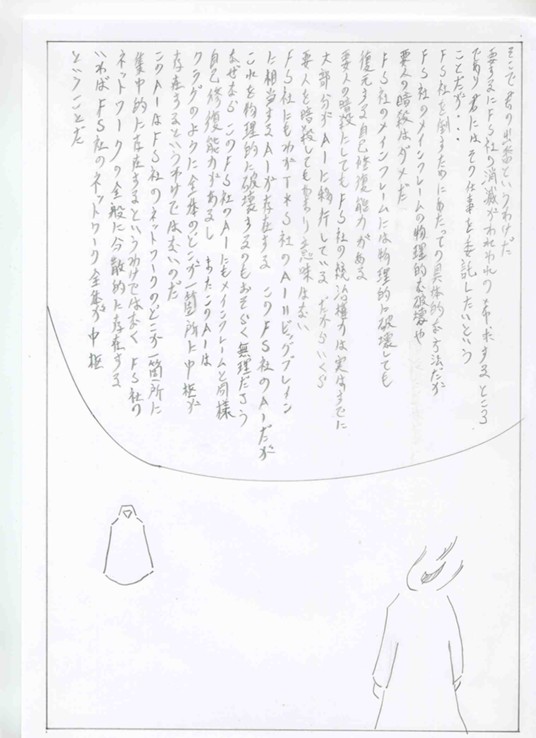 そこで君の出番というわけだ
要するにFS社の消滅がわれわれの希求するところ
であり君にはその仕事を委託したいという
ことだが・・・
FS社を倒すためにあたっての具体的な方法だが
FS社のメインフレームの物理的な破壊や
要人の暗殺はダメだ
FS社のメインフレームには物理的に破壊しても
復元する自己修復能力がある
要人の暗殺にしてもFS社の統治権力は実はすでに
大部分がAIに移行している だからいくら
要人を暗殺してもあまり意味はない
FS社にもわがT*S社のAI=ビッグブレイン
に相当するAIが存在する このFS社のAIだが
これを物理的に破壊するのもおそらく無理だろう
なぜなら このFS社のAIにもメインフレームと同様
自己修復能力があるし またこのAIは
クラゲのように全体のどこか一箇所に中枢が
存在するというわけではないのだ
このAIはFS社のネットワークのどこか一箇所に
集中的に存在するというわけではなく FS社の
ネットワークの全般に分散的に存在する
いわばFS社のネットワーク全体が中枢
ということだ